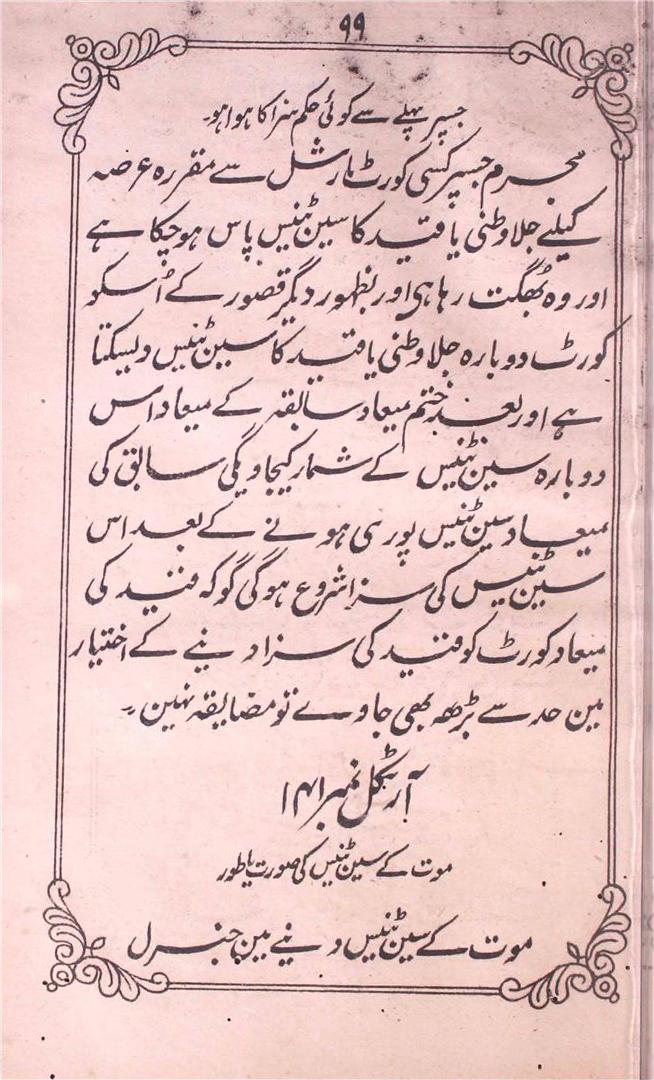 ۹۹
جسپر پہلے سے کوئی حکم سزا کا ہوا ہو۔
مجرم جسپر کسی کورٹ مارشل سے مقررہ عرصہ
کیلئے جلاوطنی یا قید کا سین ٹنیس پاس ہوچکا ہے
اور وہ بھگت رہا ہی اور بظہور دیگر قصور کے اُسکو
کورٹ دوبارہ جلاوطنی یا قید کا سین ٹنیس دیسکتا
ہے اور بعد ختم میعاد سابقہ کے میعاد اس
دوبارہ سین ٹنیس کے شمار کیجاویگی سابق کی
میعاد سین ٹنیس پوری ہونے کے بعد اس
سین ٹنیس کی سزا شروع ہوگی گو کہ قید کی
میعاد کورٹ کو قید کی سزا دینے کے اختیار
مین حد سے بڑھ بھی جاوے تو مضایقہ نہین ۔
آرٹکل نمبر ۱۴۱
موت کے سین ٹنیس کی صورت یا طور
موت کے سین ٹنیس دینے مین جنرل